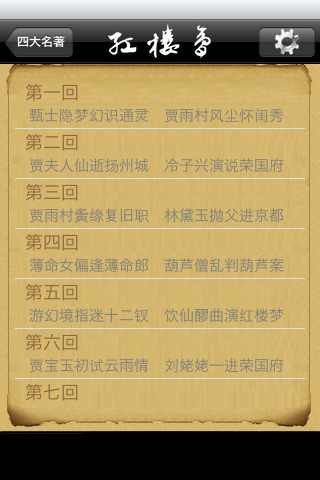 四大名著
红楼梦
第一回
甄士隐梦幻识通灵 贾雨村风尘怀闺秀
第二回
贾夫人仙逝扬州城 冷子兴演说荣国府
第三回
贾雨村夤缘复旧职 林黛玉抛父进京都
第四回
薄命女偏逢薄命郎 葫芦僧乱判葫芦案
第五回
游幻境指迷十二钗 饮仙醪曲演红楼梦
第六回
贾宝玉初试云雨情 刘姥姥一进荣国府
第七回